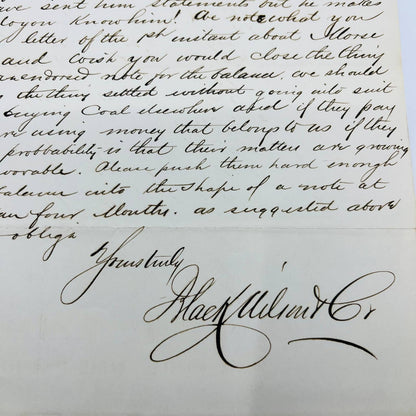 ve sent him statements but he makes
Do you Know him? We note what you
letter of the 1st instant about Moree
and wish you would close the thing
an endorsed note for the balance. we should
the thing settled without going into suit
buying Coal elsewhere and if they pay
are using money that belongs to us if they
probbability is that their matters are growing
vorable. Please push them hard enough
balance into the shape of a note at
four Months. as suggested above
oblige
Yours truly
Black Wilson & Co